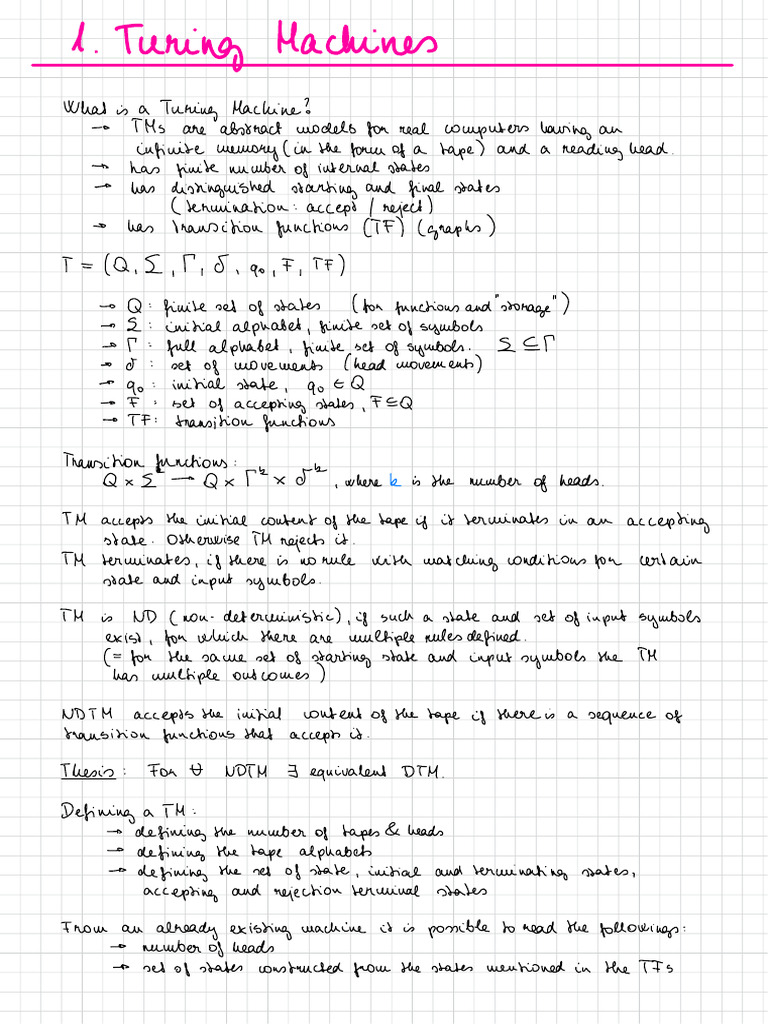 1. Turing Machines
What is a Turing Machine?
→ TMs are abstract models for real computers having an
infinite memory (in the form of a tape) and a reading head.
→ has finite number of internal states
→ has distinguished starting and final states
(termination: accept / reject)
→ has transition functions (TF) (graphs)
T = (Q, Σ, Γ, δ, q₀, F, TF)
→ Q: finite set of states (for functions and "storage")
→ Σ: initial alphabet, finite set of symbols
→ Γ: full alphabet, finite set of symbols. Σ ⊆ Γ
→ δ: set of movements (head movements)
→ q₀: initial state, q₀ ∈ Q
→ F: set of accepting states, F ⊆ Q
→ TF: transition functions
Transition functions:
Q × Σᵏ → Q × Γᵏ × δᵏ, where k is the number of heads.
TM accepts the initial content of the tape if it terminates in an accepting
state. Otherwise TM rejects it.
TM terminates, if there is no rule with matching conditions for certain
state and input symbols.
TM is ND (non-deterministic), if such a state and set of input symbols
exist, for which there are multiple rules defined.
(= for the same set of starting state and input symbols the TM
has multiple outcomes)
NDTM accepts the initial content of the tape if there is a sequence of
transition functions that accepts it.
Thesis: For ∀ NDTM ∃ equivalent DTM.
Defining a TM:
→ defining the number of tapes & heads
→ defining the tape alphabets
→ defining the set of state, initial and terminating states,
accepting and rejection terminal states
From an already existing machine it is possible to read the followings:
→ number of heads
→ set of states constructed from the states mentioned in the TFs